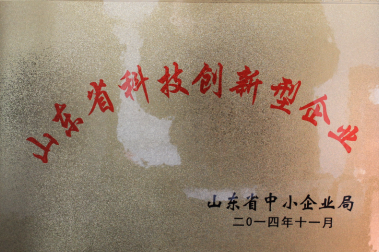 山东省科技创新型企业
山东省中小企业局
二〇一四年十一月